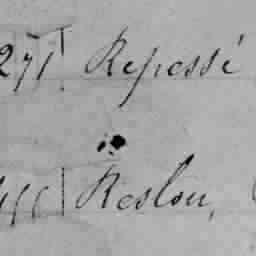 271 Repessé
Reslou,